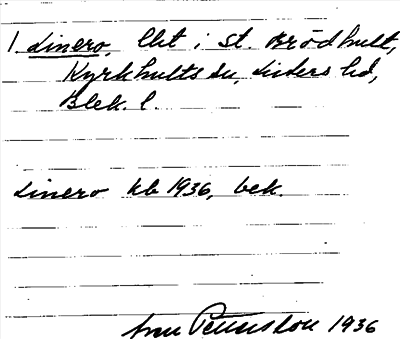 1. Linero, lht i St. Brödhult,
Kyrkhults sn, Listers hd,
Blek. l.
Linero kb 1936, bek.
1936